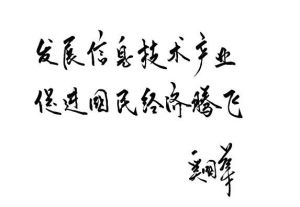 发展信息技术产业
促进国民经济腾飞